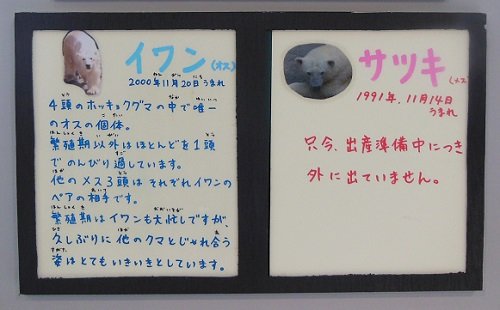 イワン(オス)
2000年11月20日うまれ
4頭のホッキョクグマの中で唯一
のオスの個体。
繁殖期以外はほとんどを1頭
でのんびり過しています。
他のメス3頭はそれぞれイワンの
ペアの相手です。
繁殖期はイワンも大忙しですが、
久しぶりに他のクマとじゃれ合う
姿はとてもいきいきとしています。
サツキ(メス)
1991年.11月14日
うまれ
只今、出産準備中につき
外に出ていません。